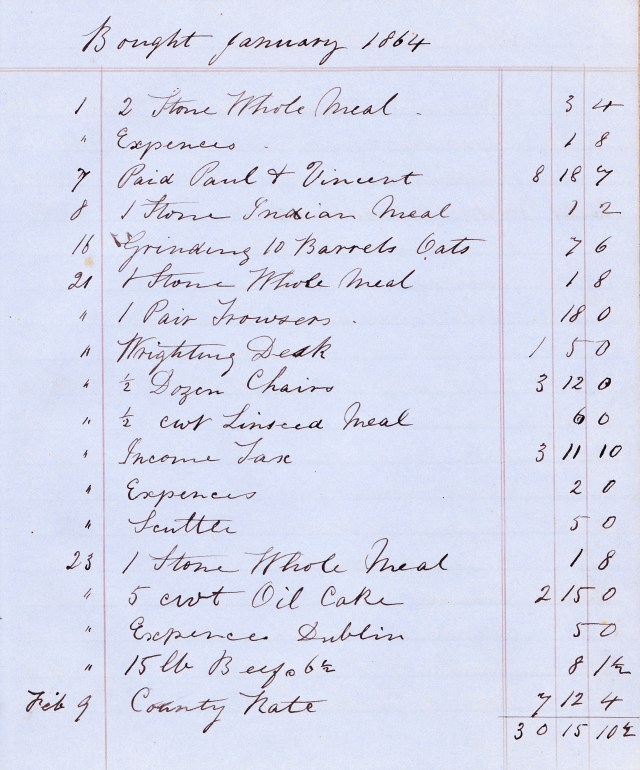 Bought January 1864
1 2 Stone Whole Meal 3 4
" Expences 1 8
7 Paid Paul & Vincent 8 18 7
8 1 Stone Indian Meal 1 2
16 Grinding 10 Barrels Oats 7 6
21 1 Stone Whole Meal 1 8
" 1 Pair Trowsers 18 0
" Wrighting Desk 1 5 0
" ½ Dozen Chairs 3 12 0
" ½ cwt Linseed Meal 6 0
" Income Tax 3 11 10
" Expences 2 0
" Scuttle 5 0
23 1 Stone Whole Meal 1 8
" 5 cwt Oil Cake 2 15 0
" Expences Dublin 5 0
" 15 lb Beef 6½ 8 1½
Feb 9 County Rate 7 12 4
30 15 10½